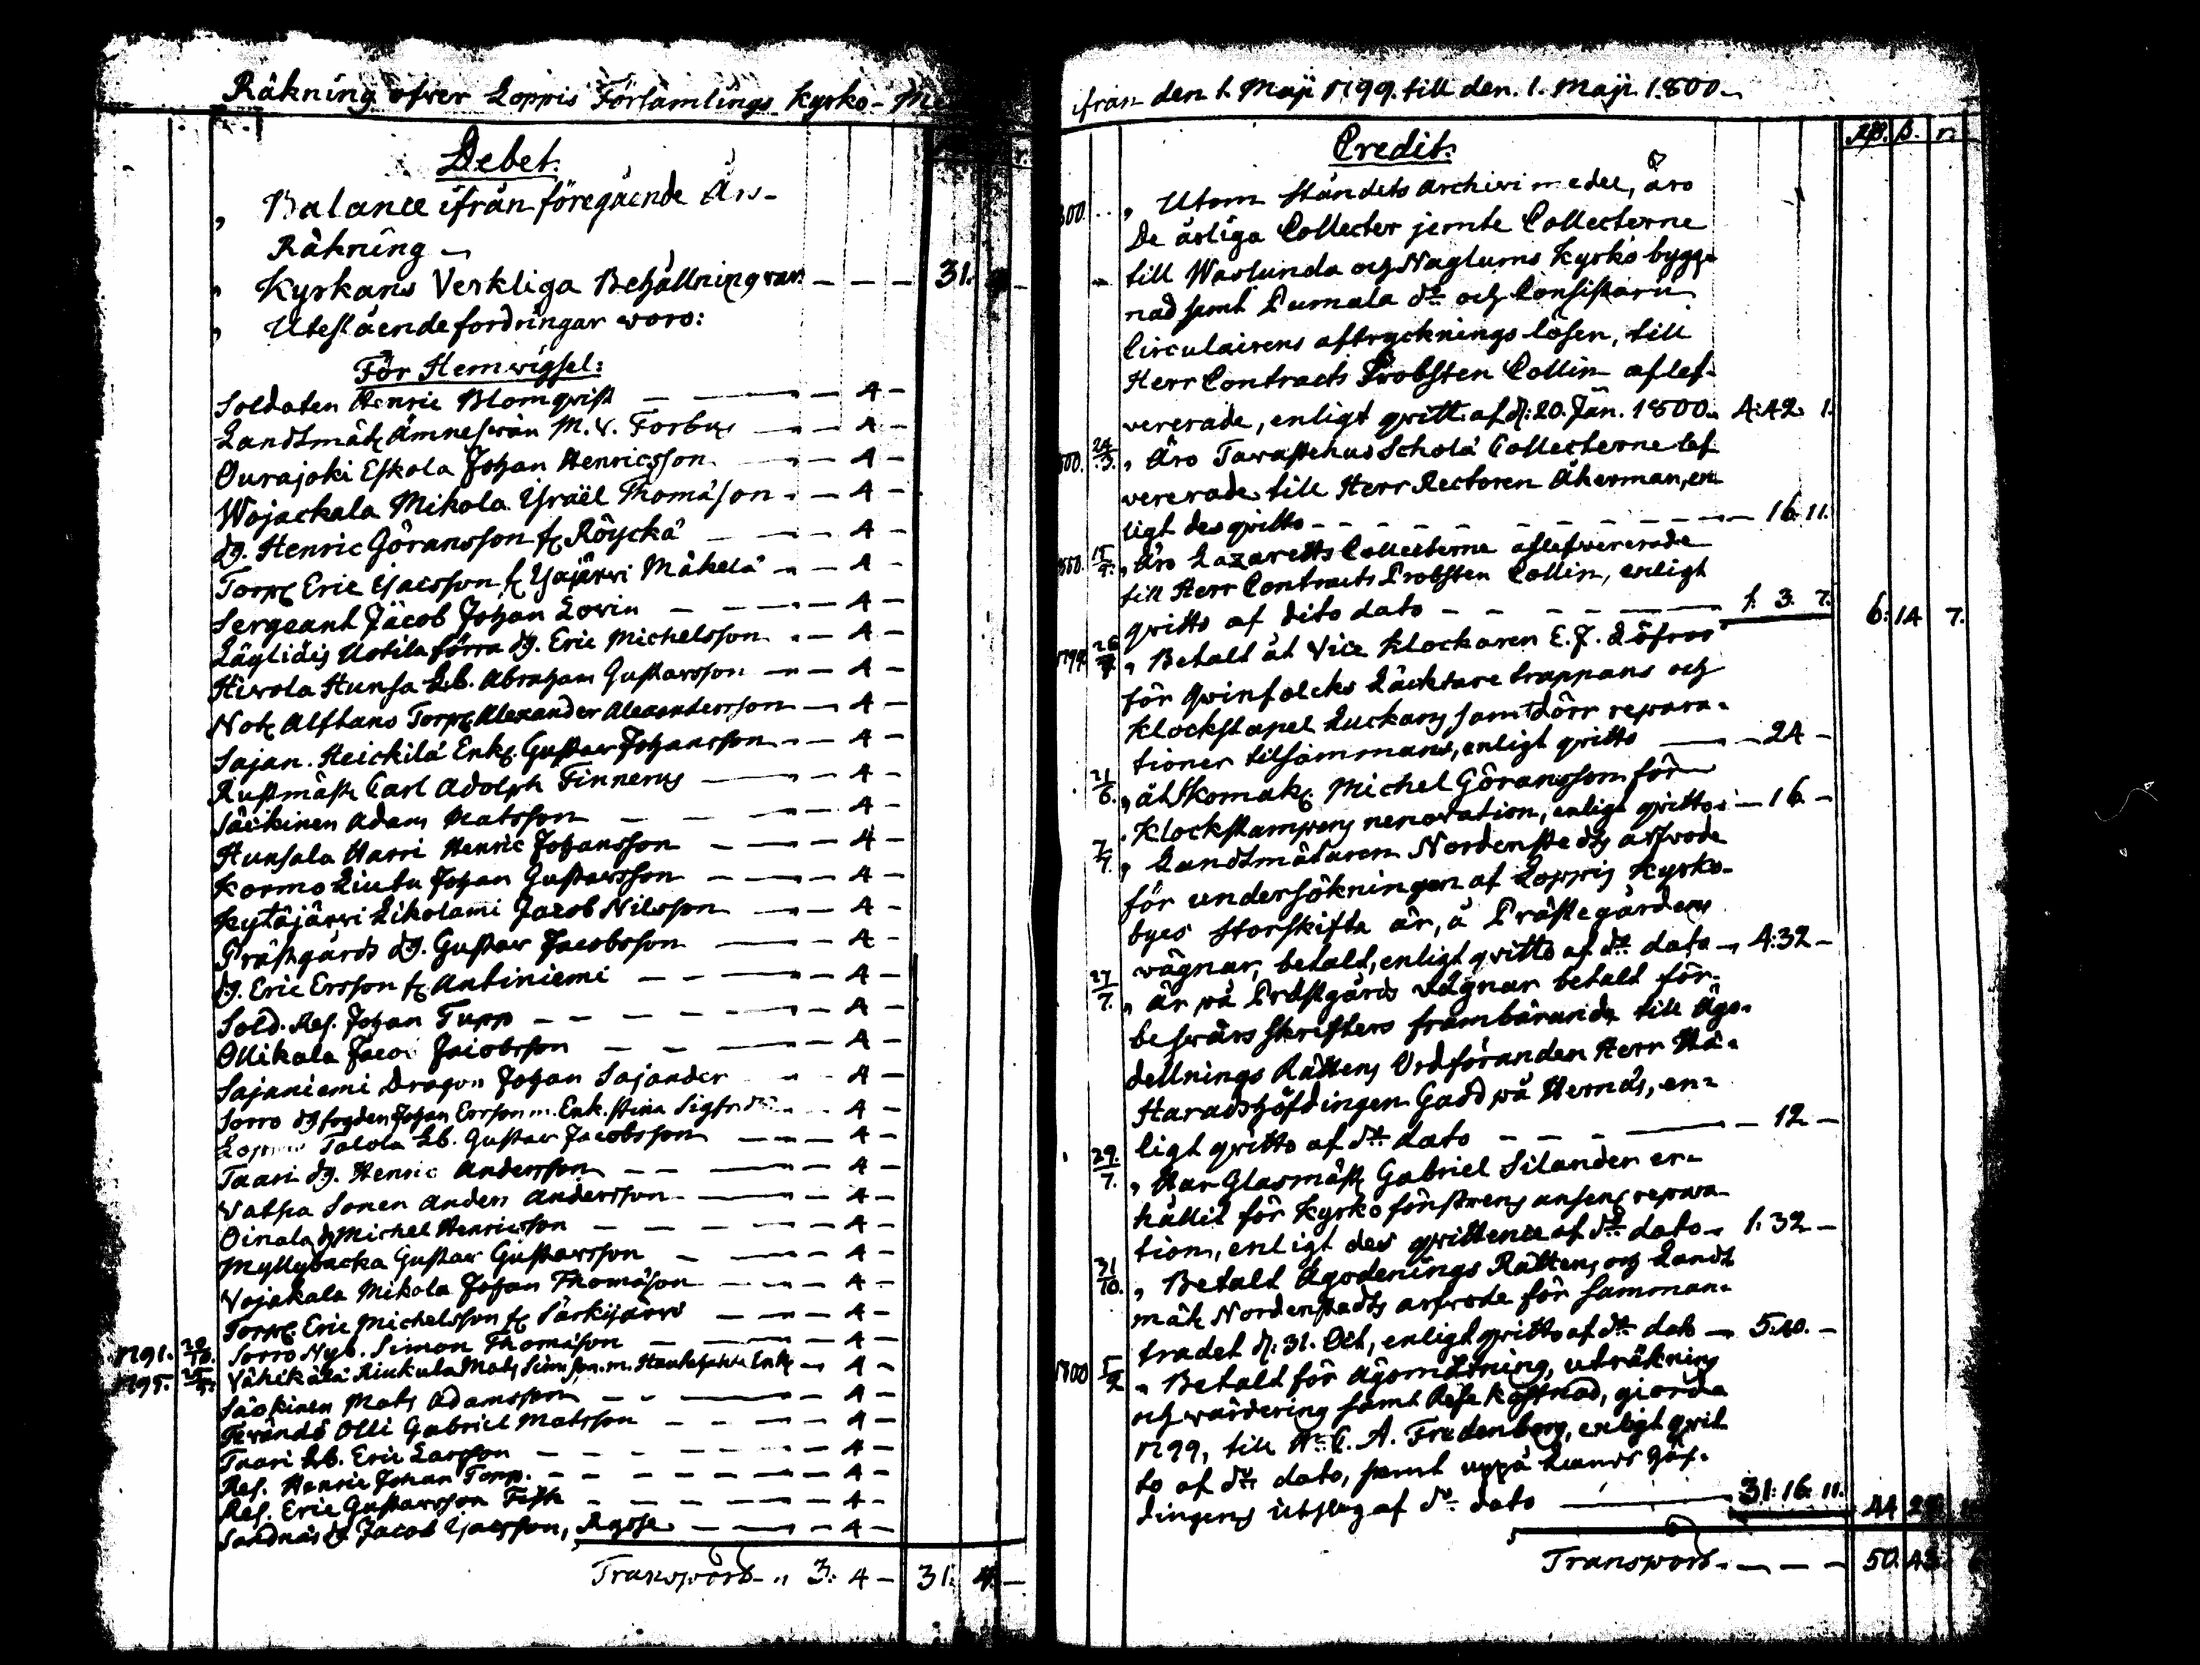 Räkning öfver Loppis Församlings Kyrko-
Debet.
Balance ifrån föregående Års-
Räkning
Kyrkans Verkliga Behållning var — — — 31. 4 —
Utestående fordringar woro:
För Hemvigsel:
Soldaten Henric Blomqvist — — 4 —
Landtmät. Ämnesvän M. V. Forbus — — 4 —
Ourajoki Eskola Johan Henricsson — 4 —
Wojackala Mikola Israël Thomasson — 4 —
dg. Henric Göransson fr. Röyckä — — 4 —
Torp. Eric Isacsson fr. Yajärvi Mäkelä — 4 —
Sergeant Jacob Johan Lovin — — — 4 —
Läylidis Uotila förra dg. Eric Michelsson — 4 —
Hirvola Hunsa Lb. Abraham Gustavsson — 4 —
Not. Alftans Torp. Alexander Alexandersson — 4 —
Sajan. Heickilä Enk. Gustav Johansson — 4 —
Rustmäst. Carl Adolph Finnerus — — 4 —
Särkinen Adam Matsson — — — 4 —
Hunsala Harri Henric Johansson — — 4 —
Kormo Liuta Johan Gustavsson — — 4 —
Kytäjärvi Likolami Jacob Nilsson — 4 —
Prästgårds dg. Gustav Jacobsson — — 4 —
dg. Eric Ersson fr. Antiniemi — — — 4 —
Sold. Res. Johan Tupp — — — — 4 —
Ollikala Jacob Jacobsson — — — 4 —
Sajaniemi Dragon Johan Sajander — 4 —
Sorro dg fogden Johan Ersson m. Enk. Stina — 4 —
Talola Lb. Gustav Jacobsson — — 4 —
Taari dg. Henric Andersson — — — 4 —
Vatsia Sonen Anders Andersson — — 4 —
Oinala dg Michel Henricsson — — — 4 —
Myllybacka Gustav Gustavsson — — 4 —
Vojakala Mikola Johan Thomasson — — 4 —
Torp. Eric Michelsson fr. Särkijärvi — — 4 —
1791. Sorro Nyb. Simon Thomasson — — 4 —
1795. Vähikälä Riukula Mats Simsson m. Enk. — 4 —
Särkinen Mats Adamsson — — — 4 —
Terändö Olli Gabriel Matsson — — — 4 —
Taari Lb. Eric Larsson — — — — 4 —
Res. Henric Johan Topp. — — — — 4 —
Res. Eric Gustavsson Fisk — — — — 4 —
Sandnäs dg. Jacob Isacsson, — — 4 —
Transport — 3: 4 — 31. 4. —
ifrån den 1. Maji 1799. till den. 1. Maji 1800.
Credit.
Utom Ståndets Archivi medel, äro
De årliga Collecter jemte Collecterne
till Waslunda och Naglums Kyrko bygg-
nad samt Pumala do och Consistorii
Circulairens aftrycknings lösen, till
Herr Contracts Probsten Collin aflef-
vererade, enligt qvitt. af d: 20. Jan. 1800. 4:42. 1.
24/3. Äro Tavastehus Schola Collecterne lef-
vererade till Herr Rectoren Åkerman, en-
ligt des qvitto — — — 16. 11.
15/4. Äro Lazaretts Collecterne aflefvererade
till Herr Contracts Probsten Collin, enligt
qvitto af dito dato — — — 1. 3. 7. 6: 14 7.
1799. Betalt åt Vice Klockaren E. J. Löfros
för Qvinfolcks Läcktare trappans och
Klockstapel Luckans samt dörr repara-
tioner tilsammans, enligt qvitto — 24 —
21/6. åt Skomak. Michel Göransson för
Klockstampens renovation, enligt qvitto — 16 —
7/7. Landtmätaren Nordenstedts arfvode
för undersökningen af Loppis Kyrko-
byes Storskifte är, å Prästegårdens
vägnar, betalt, enligt qvitto af do dato — 4:32 —
27/7. är på Prästgårds vägnar betalt för
besvärs skrifters frambärande till Ägo-
dellnings Rättens Ordföranden Herr Hä-
Haradshöfdingen Gadd på Hernäs, en-
ligt qvitto af do dato — — — 12 —
29/7. Har Glasmäst. Gabriel Silander er-
hållit för Kyrko fönstrens ansens repara-
tion, enligt des qvittence af do dato — 1:32 —
31/10. Betalt Ägodenings Rättens och Landt
mät. Nordenstedts arfvode för Samman-
trädet d: 31. Oct, enligt qvitto af do dato — 5:10. —
1800 5/2 Betalt för Ägomätning, uträkning
och värdering samt Rese kostnad, giorda
1799, till Hr C. A. Fredenberg, enligt qvit
to af do dato, samt uppå Lands höf-
dingens utslag af do dato — 31:16. 11. 44
Transport — — — 50. 43.